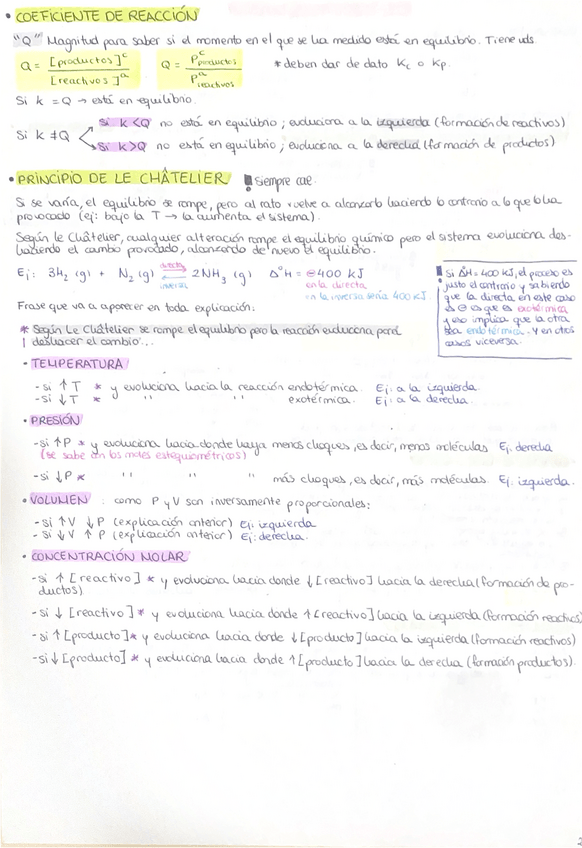 • COEFICIENTE DE REACCIÓN
"Q" Magnitud para saber si el momento en el que se ha medido está en equilibrio. Tiene uds.
Q = [productos]^c / [reactivos]^a   Q = P^c productos / P^a reactivos   * deben dar de dato Kc o Kp.
Si k = Q → está en equilibrio.
Si k ≠ Q
si k < Q no está en equilibrio; evoluciona a la izquierda (formación de reactivos)
si k > Q no está en equilibrio; evoluciona a la derecha (formación de productos)
• PRINCIPIO DE LE CHÂTELIER ! siempre cae.
Si se varía, el equilibrio se rompe, pero al rato vuelve a alcanzarlo haciendo lo contrario a lo que lo ha
provocado (ej: bajo la T → la aumenta el sistema).
Según le Châtelier, cualquier alteración rompe el equilibrio químico pero el sistema evoluciona des-
haciendo el cambio provocado, alcanzando de nuevo el equilibrio.
Ej: 3H₂ (g) + N₂ (g) directa ⇄ inversa 2NH₃ (g) Δ°H = ⊖400 kJ
en la directa,
en la inversa sería 400 kJ.
! Si ΔH = 400 kJ, el proceso es
justo el contrario y sabiendo
que la directa en este caso
es ⊖ es que es exotérmica
y eso implica que la otra
sea endotérmica. Y en otros
casos viceversa.
Frase que va a aparecer en toda explicación:
* Según Le Châtelier se rompe el equilibrio pero la reacción evoluciona para
deshacer el cambio...
· TEMPERATURA
- si ↑ T * y evoluciona hacia la reacción endotérmica. Ej: a la izquierda.
- si ↓ T * " " exotérmica. Ej: a la derecha.
· PRESIÓN
- si ↑ P * y evoluciona hacia donde haya menos choques, es decir, menos moléculas Ej. derecha
(se sabe con los moles estequiométricos)
- si ↓ P * " " " más choques, es decir, más moléculas. Ej. izquierda.
· VOLUMEN : como P y V son inversamente proporcionales:
- si ↑V ↓P (explicación anterior) Ej: izquierda
- si ↓V ↑P (explicación anterior) Ej: derecha.
· CONCENTRACIÓN MOLAR
- si ↑ [reactivo] * y evoluciona hacia donde ↓ [reactivo] hacia la derecha (formación de pro-
ductos)
- si ↓ [reactivo] * y evoluciona hacia donde ↑ [reactivo] hacia la izquierda (formación reactivos)
- si ↑ [producto] * y evoluciona hacia donde ↓ [producto] hacia la izquierda (formación reactivos)
- si ↓ [producto] * y evoluciona hacia donde ↑ [producto] hacia la derecha (formación productos).